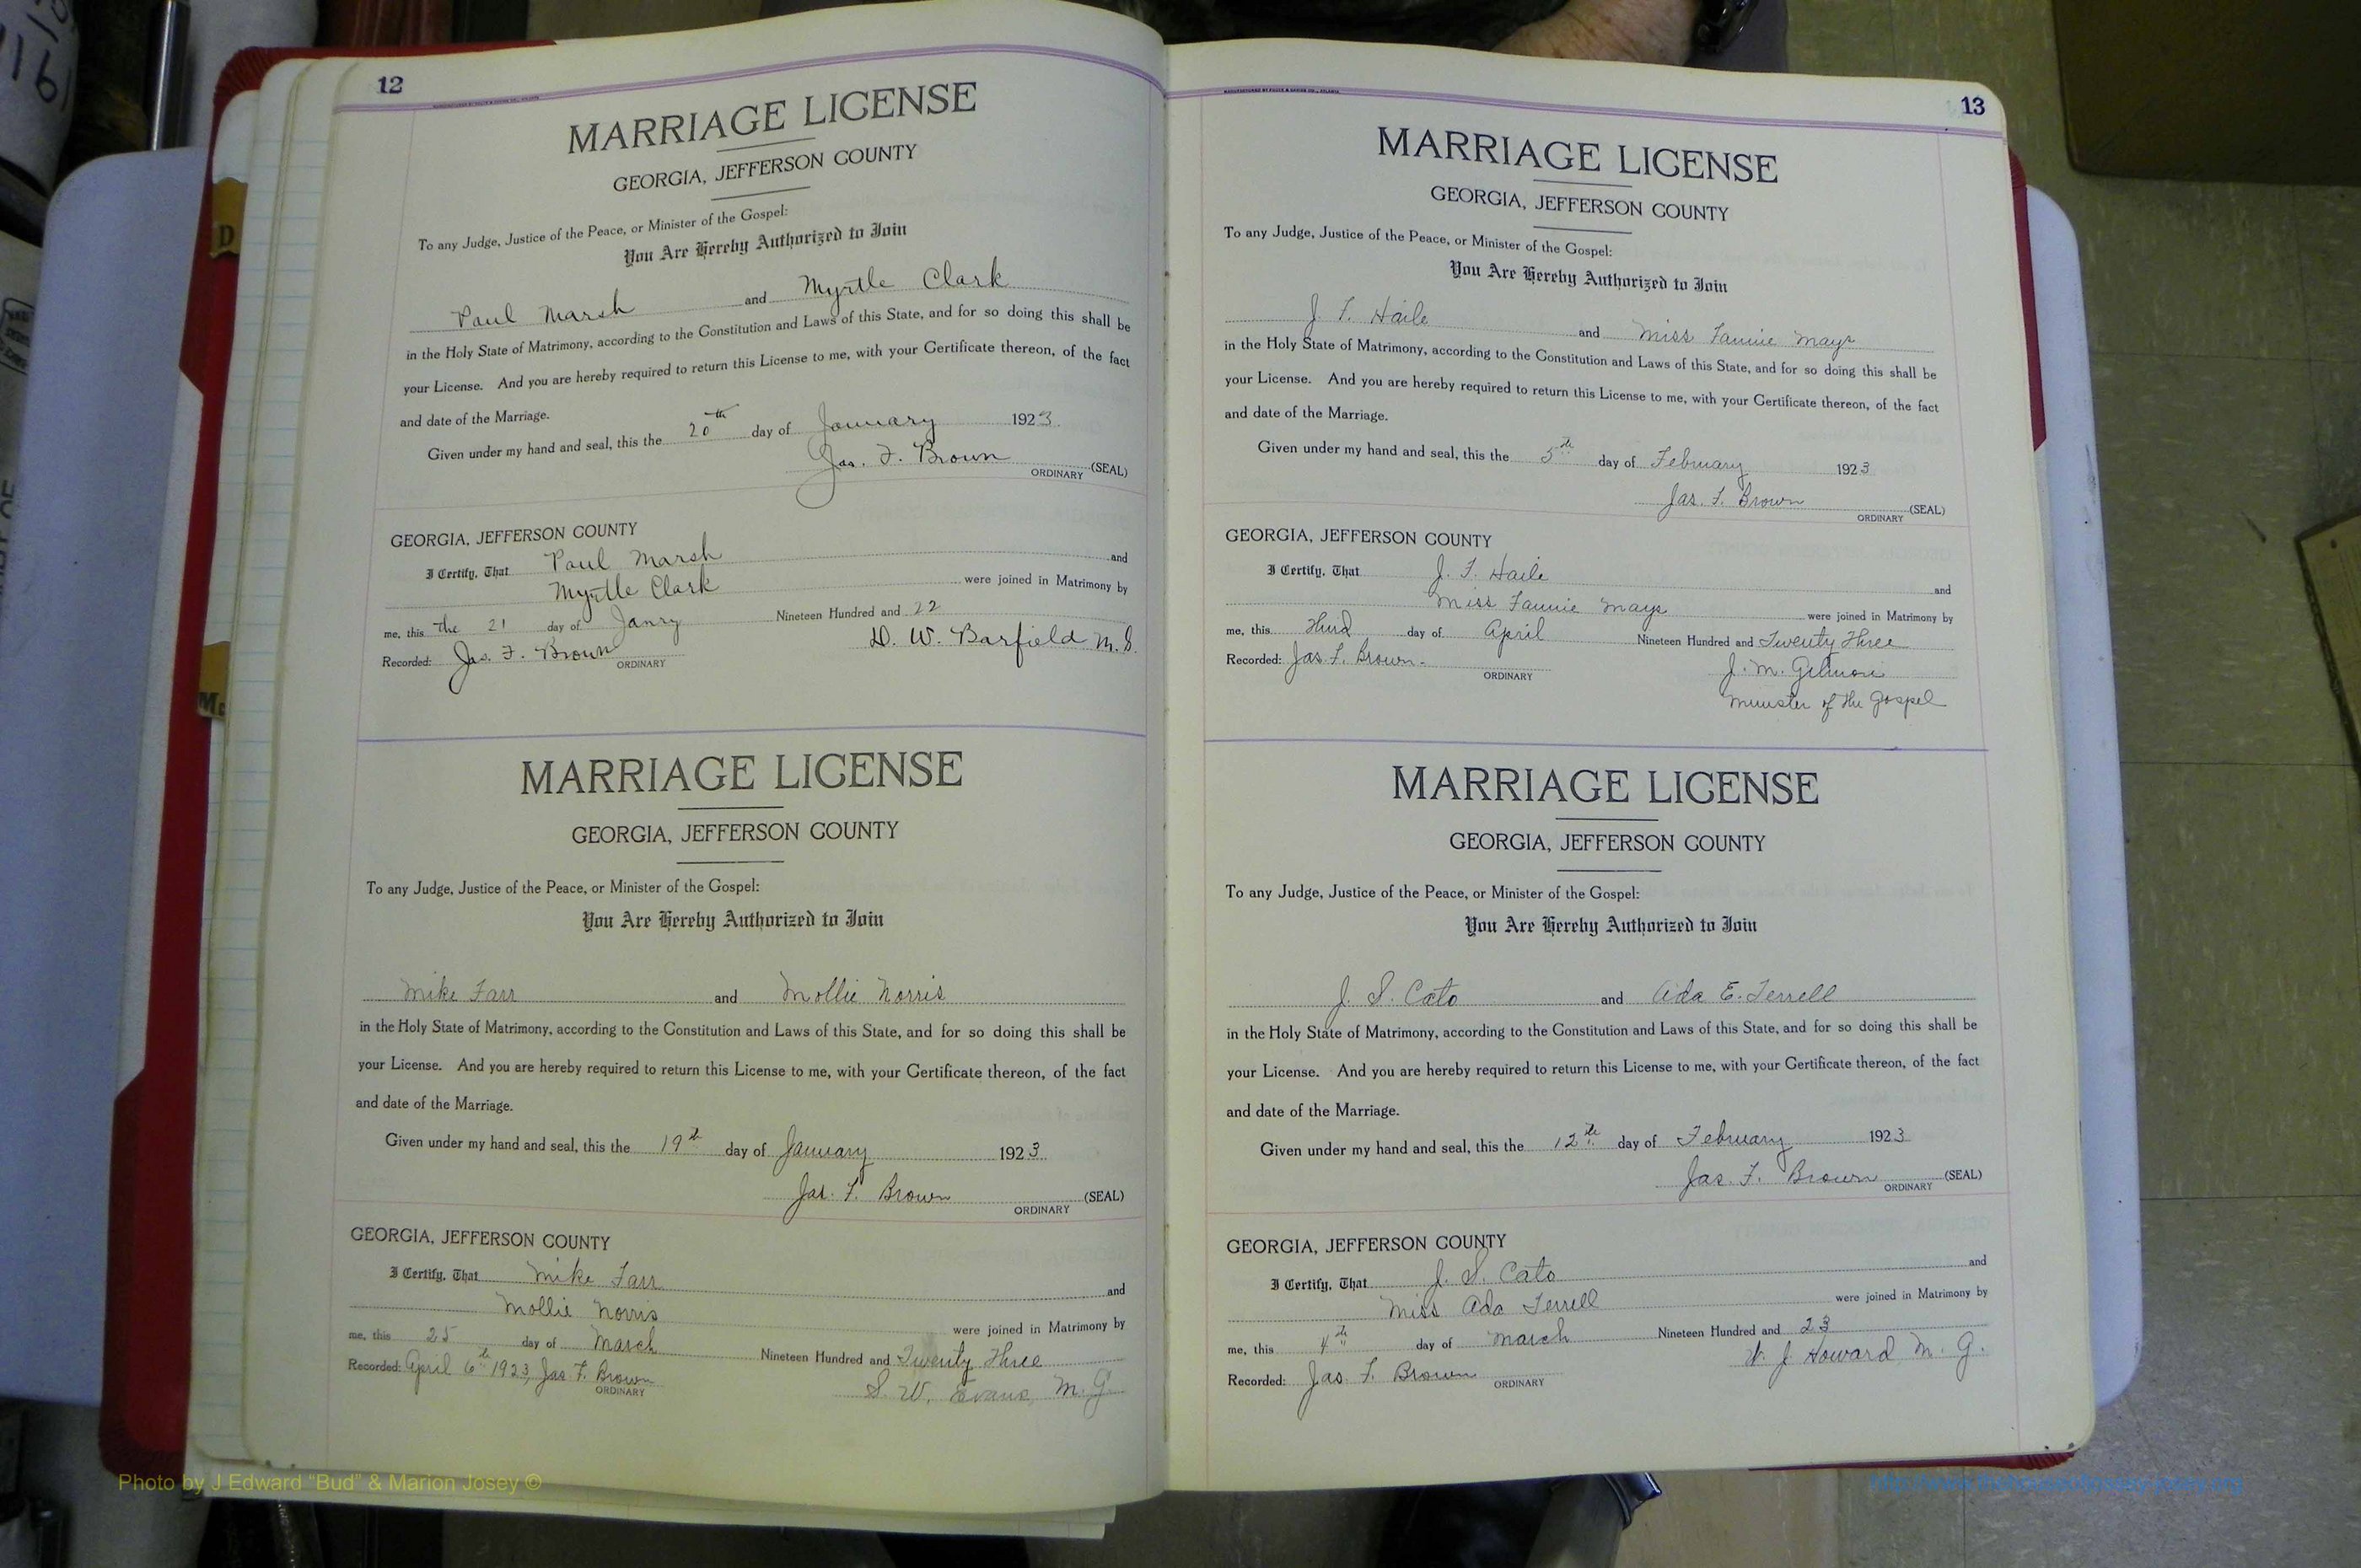 12
MARRIAGE LICENSE
GEORGIA, JEFFERSON COUNTY
To any Judge, Justice of the Peace, or Minister of the Gospel:
You Are Hereby Authorized to Join
Paul Marsh and Myrtle Clark
in the Holy State of Matrimony, according to the Constitution and Laws of this State, and for so doing this shall be
your License. And you are hereby required to return this License to me, with your Certificate thereon, of the fact
and date of the Marriage.
Given under my hand and seal, this the 20th day of January 1923.
Jas. F. Brown (SEAL)
ORDINARY
GEORGIA, JEFFERSON COUNTY
I Certify, That Paul Marsh and
Myrtle Clark were joined in Matrimony by
me, this the 21 day of Janry Nineteen Hundred and 22
Recorded: Jas. F. Brown D. W. Barfield M. G.
ORDINARY
MARRIAGE LICENSE
GEORGIA, JEFFERSON COUNTY
To any Judge, Justice of the Peace, or Minister of the Gospel:
You Are Hereby Authorized to Join
Mike Farr and Mollie Norris
in the Holy State of Matrimony, according to the Constitution and Laws of this State, and for so doing this shall be
your License. And you are hereby required to return this License to me, with your Certificate thereon, of the fact
and date of the Marriage.
Given under my hand and seal, this the 19th day of January 1923.
Jas. F. Brown (SEAL)
ORDINARY
GEORGIA, JEFFERSON COUNTY
I Certify, That Mike Farr and
Mollie Norris were joined in Matrimony by
me, this 25 day of March Nineteen Hundred and Twenty Three
Recorded: April 6th 1923, Jas. F. Brown S. W. Evans, M. G.
ORDINARY
13
MARRIAGE LICENSE
GEORGIA, JEFFERSON COUNTY
To any Judge, Justice of the Peace, or Minister of the Gospel:
You Are Hereby Authorized to Join
J. F. Haile and Miss Fannie Mays
in the Holy State of Matrimony, according to the Constitution and Laws of this State, and for so doing this shall be
your License. And you are hereby required to return this License to me, with your Certificate thereon, of the fact
and date of the Marriage.
Given under my hand and seal, this the 5th day of February 1923
Jas. F. Brown (SEAL)
ORDINARY
GEORGIA, JEFFERSON COUNTY
I Certify, That J. F. Haile and
Miss Fannie Mays were joined in Matrimony by
me, this day of April Nineteen Hundred and Twenty Three
Recorded: Jas. F. Brown. J. M. Gilmore
ORDINARY
Minister of the Gospel
MARRIAGE LICENSE
GEORGIA, JEFFERSON COUNTY
To any Judge, Justice of the Peace, or Minister of the Gospel:
You Are Hereby Authorized to Join
J. S. Cato and Ada E. Terrell
in the Holy State of Matrimony, according to the Constitution and Laws of this State, and for so doing this shall be
your License. And you are hereby required to return this License to me, with your Certificate thereon, of the fact
and date of the Marriage.
Given under my hand and seal, this the 12th day of February 1923
Jas. F. Brown (SEAL)
ORDINARY
GEORGIA, JEFFERSON COUNTY
I Certify, That J. S. Cato and
Miss Ada Terrell were joined in Matrimony by
me, this 4th day of March Nineteen Hundred and 23
Recorded: Jas. F. Brown W. J. Howard M. G.
ORDINARY
Photo by J Edward “Bud” & Marion Josey ©